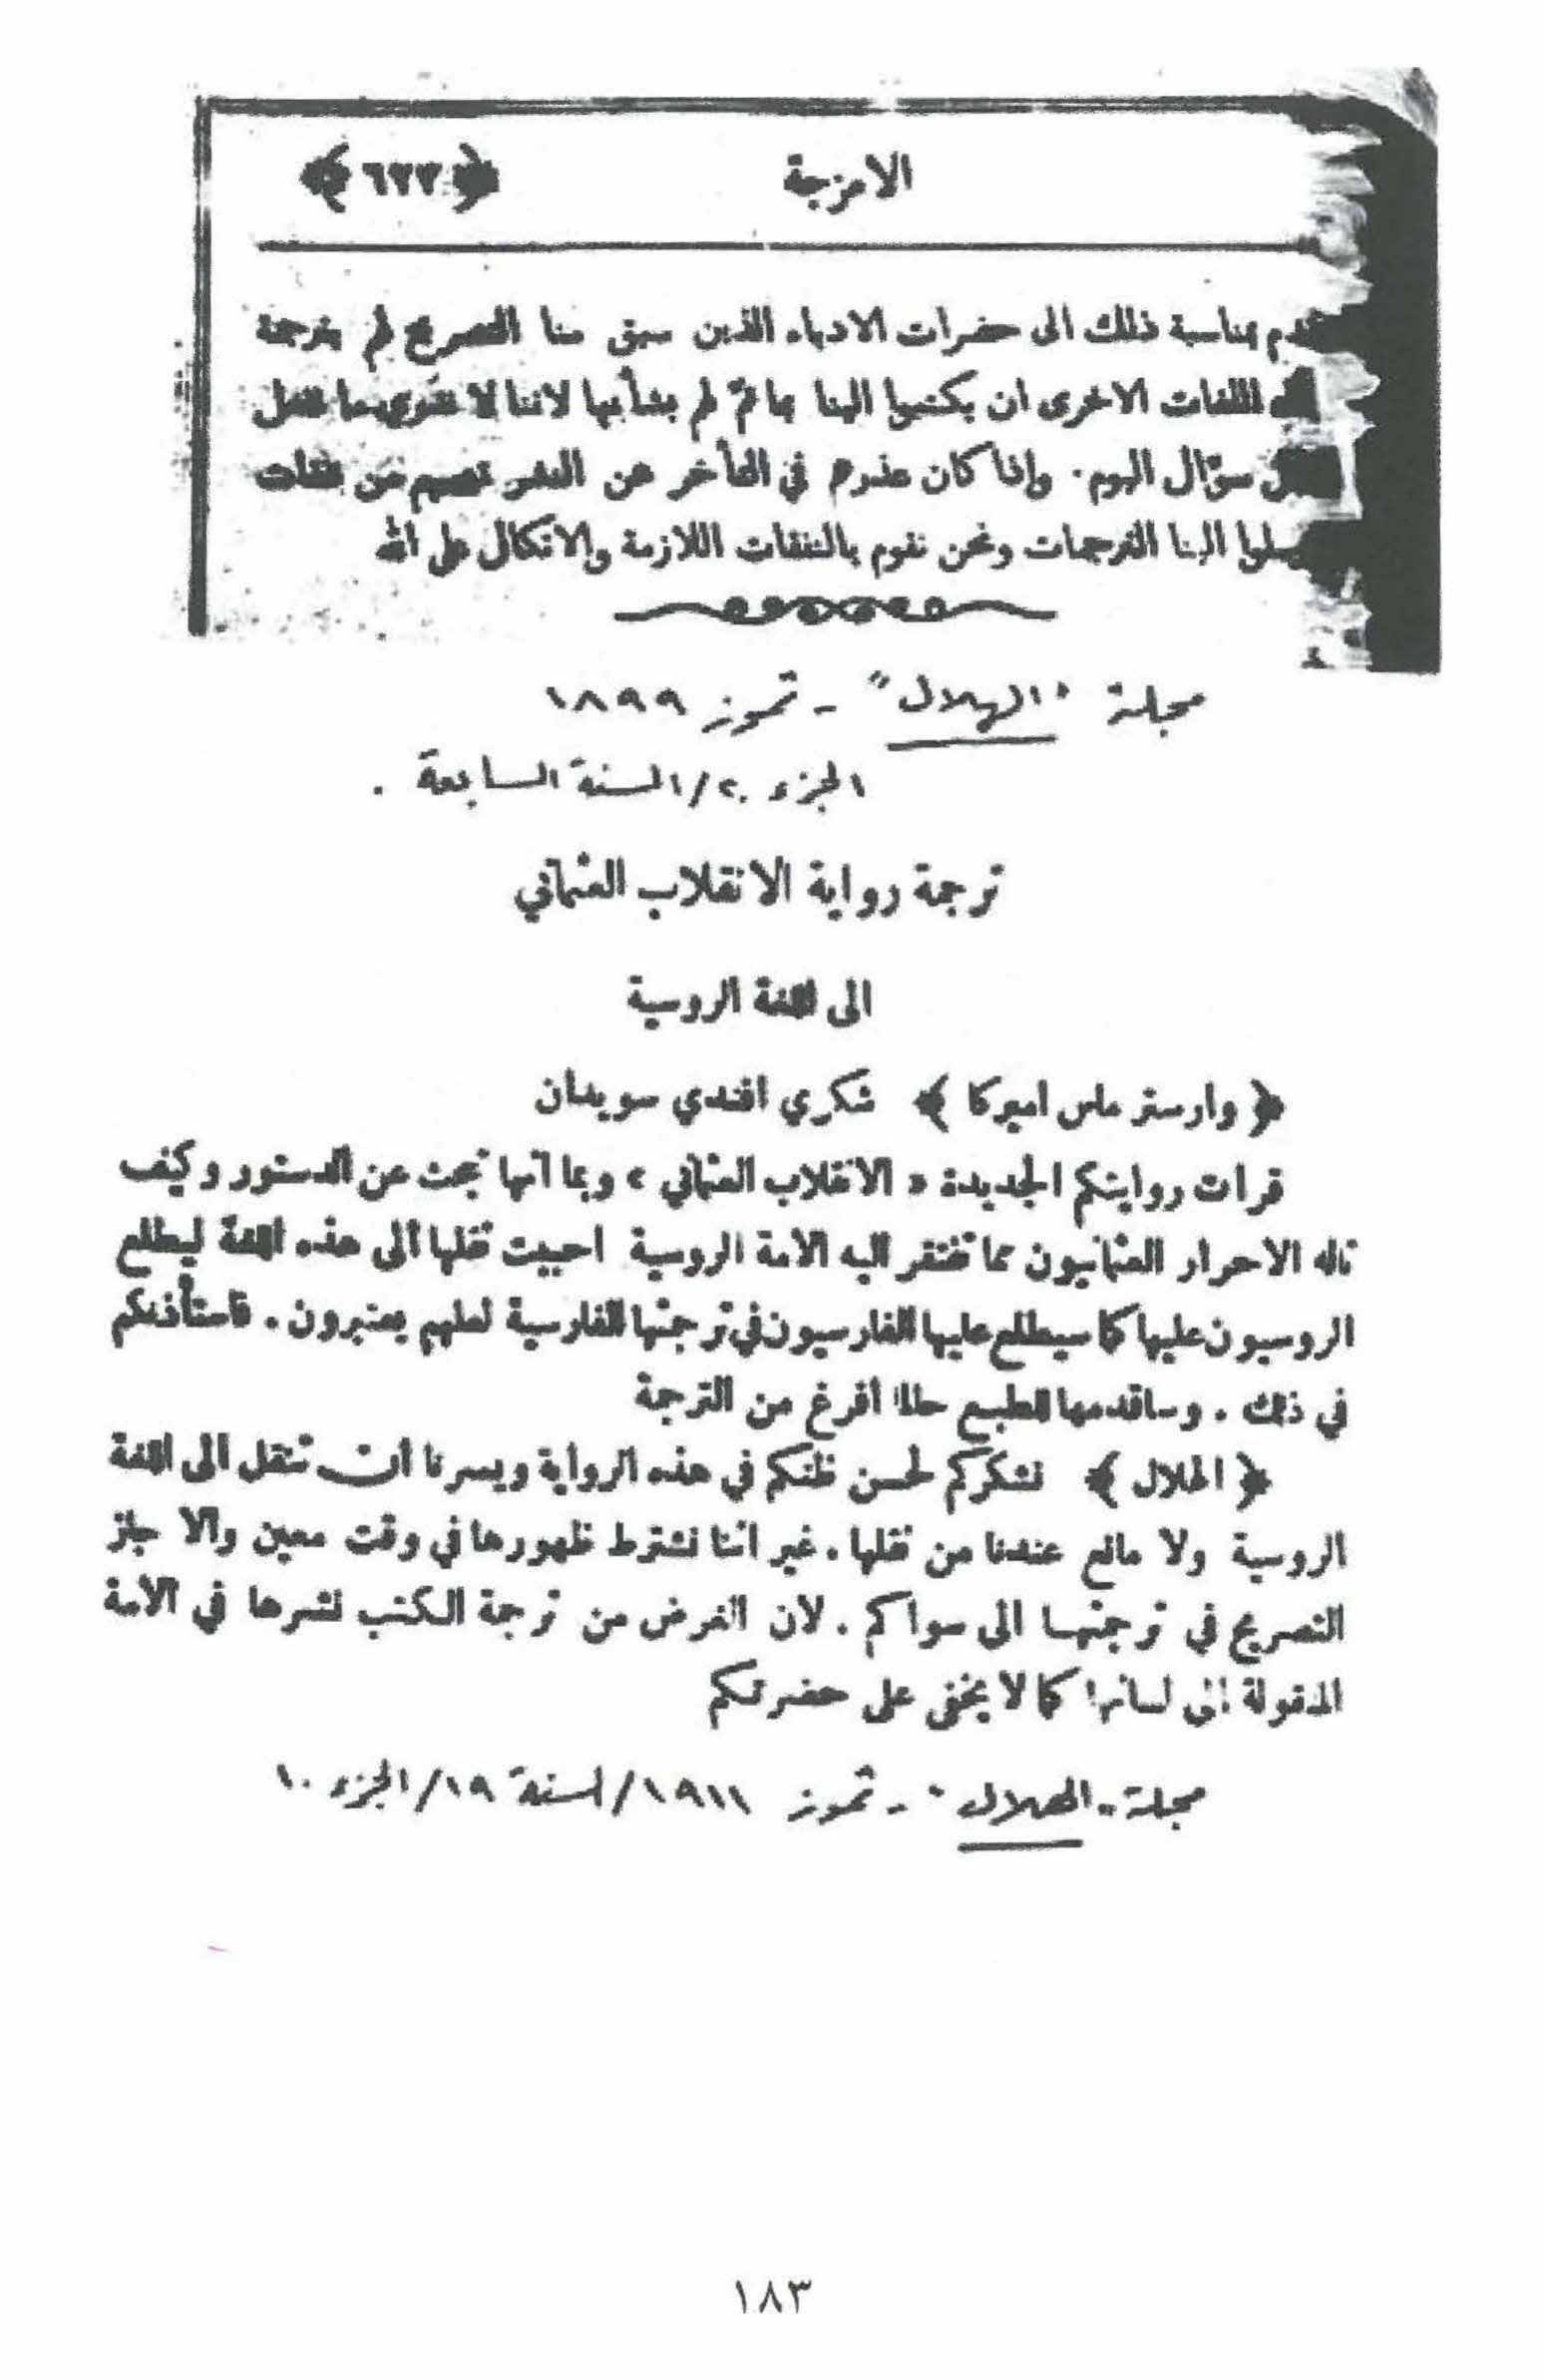 الامزجة ﴿٦٢٣﴾
بمناسبة ذلك الى حضرات الادباء الذين سبق منا التصريح لهم بترجمة
اللغات الاخرى ان يكتبوا الينا بما تمّ لهم بشأنها لاننا لا ندري ما
سؤال اليوم. واذا كان عذرهم في التأخر عن النشر خوفهم من نفقات
الينا الترجمات ونحن نقوم بالنفقات اللازمة والاتكال على الله
مجلة "الهلال" - تموز ١٨٩٩
الجزء ٢٠/السنة السابعة .
ترجمة رواية الانقلاب العثماني
الى اللغة الروسية
﴿ وارستر ماس اميركا ﴾ شكري افندي سويدان
قرات روايتكم الجديدة « الانقلاب العثماني » وبما انها تبحث عن الدستور وكيف
ناله الاحرار العثمانيون مما تفتقر اليه الامة الروسية احببت نقلها الى هذه اللغة ليطلع
الروسيون عليها كما سيطلع عليها الفارسيون في ترجمتها الفارسية لعلهم يعتبرون . فاستأذنكم
في ذلك . وساقدمها للطبع حالما أفرغ من الترجمة
﴿ الهلال ﴾ نشكركم لحسن ظنكم في هذه الرواية ويسرنا أن تنقل الى اللغة
الروسية ولا مانع عندنا من نقلها . غير اننا نشترط ظهورها في وقت معين والا جاز
التصريح في ترجمتها الى سواكم . لان الغرض من ترجمة الكتب نشرها في الامة
المنقولة الى لسانها كما لا يخفى على حضرتكم
مجلة "الهلال" - تموز ١٩١١/السنة ١٩/الجزء ١٠
١٨٣